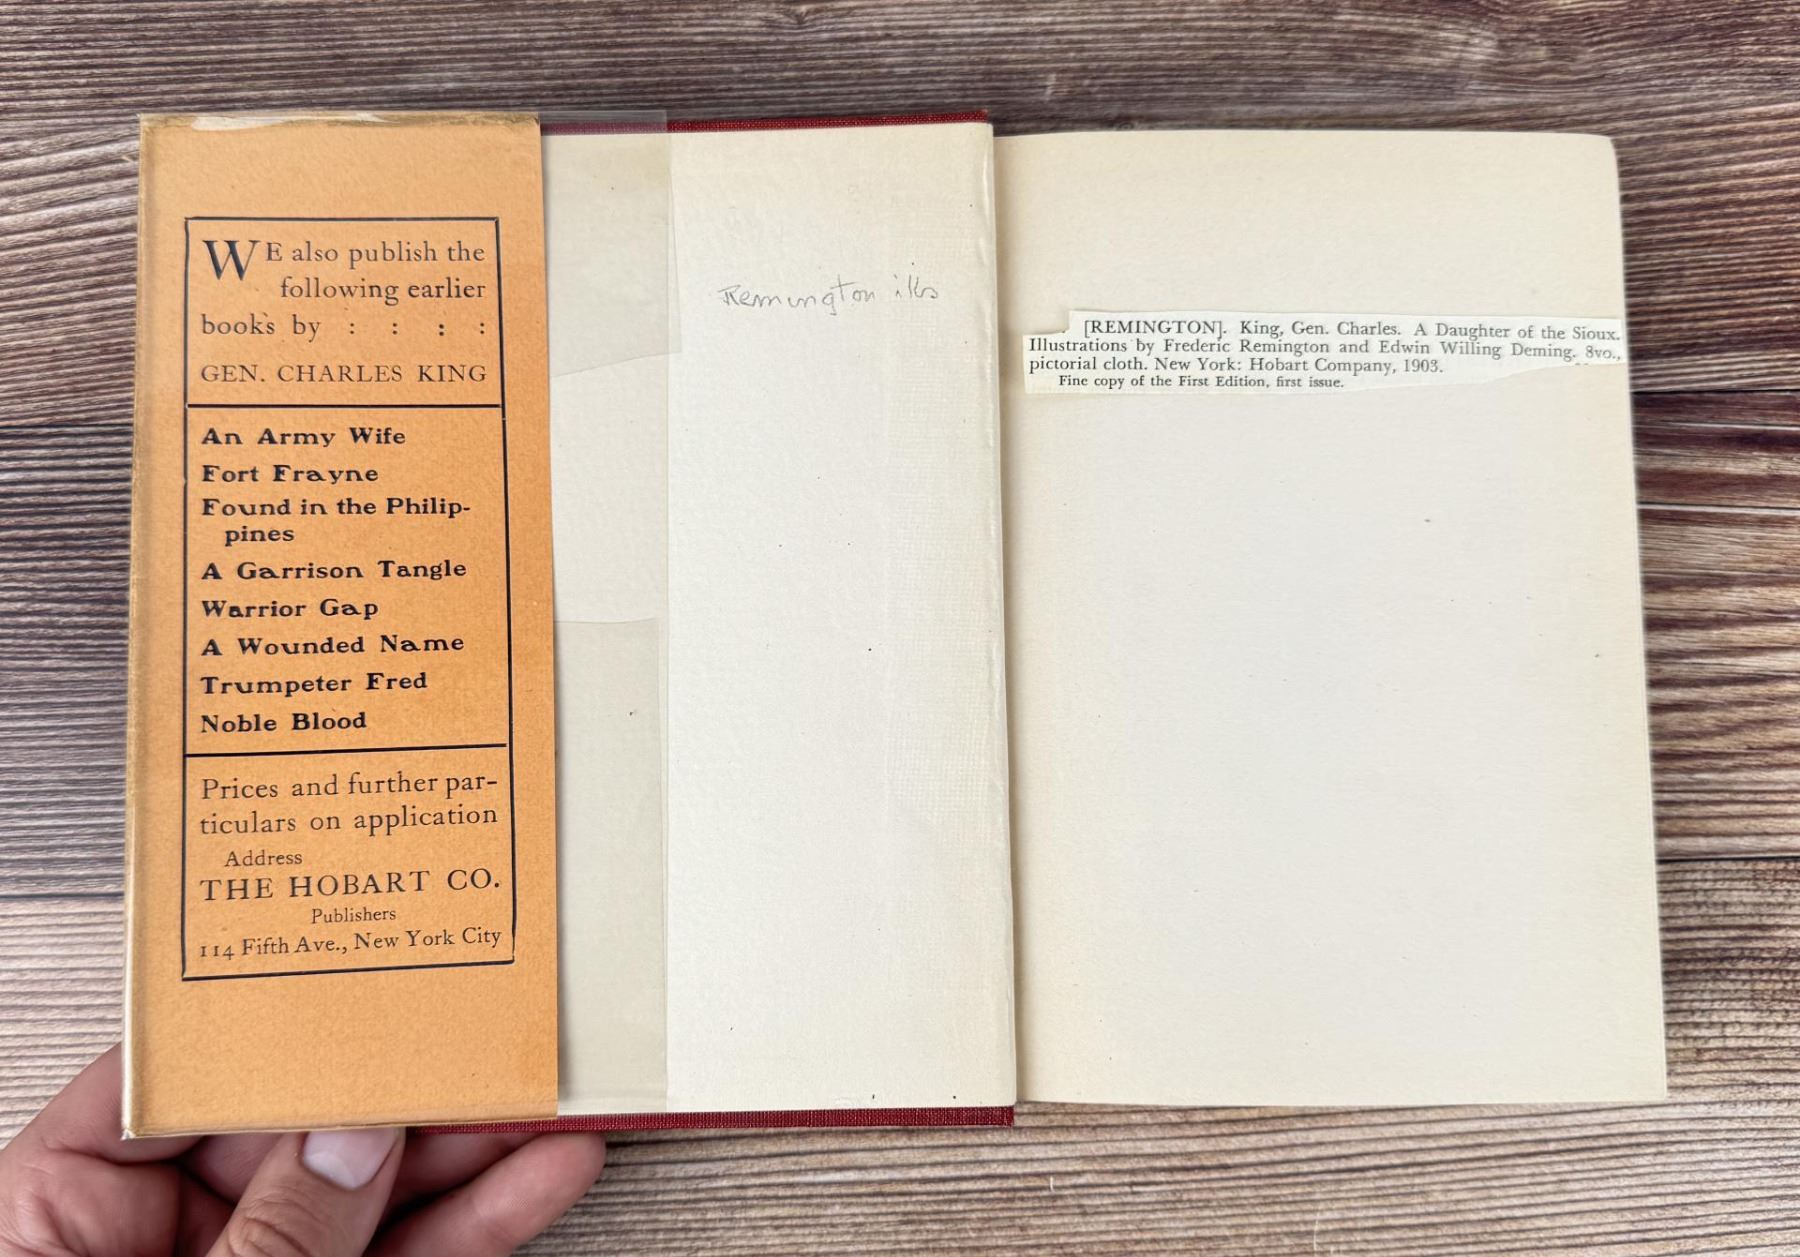 WE also publish the
following earlier
books by : : : :
GEN. CHARLES KING
An Army Wife
Fort Frayne
Found in the Philip-
pines
A Garrison Tangle
Warrior Gap
A Wounded Name
Trumpeter Fred
Noble Blood
Prices and further par-
ticulars on application
Address
THE HOBART CO.
Publishers
114 Fifth Ave., New York City
Remington ills
[REMINGTON]. King, Gen. Charles. A Daughter of the Sioux.
Illustrations by Frederic Remington and Edwin Willing Deming. 8vo.,
pictorial cloth. New York: Hobart Company, 1903.
Fine copy of the First Edition, first issue.